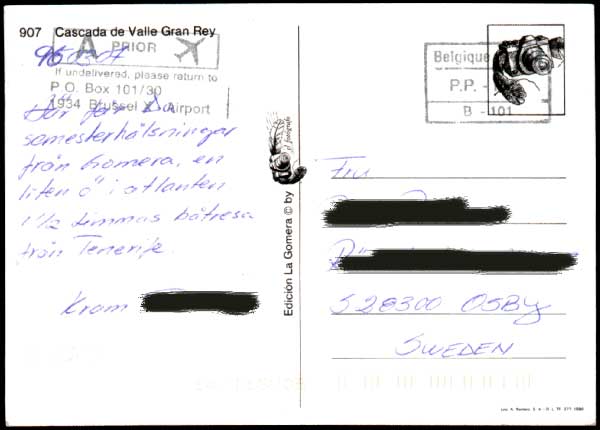 907 Cascada de Valle Gran Rey
A PRIOR
If undelivered, please return to
P.O. Box 101/30
1934 Brussel X Airport
Här får Du
semesterhälsningar
från Gomera, en
liten ö i atlanten
1 1/2 timmas båtresa
från Tenerife.
Kram
Edición La Gomera © by
el fotógrafo
Belgique
P.P. -
B - 101
Fru
S 28300 OSBY
SWEDEN